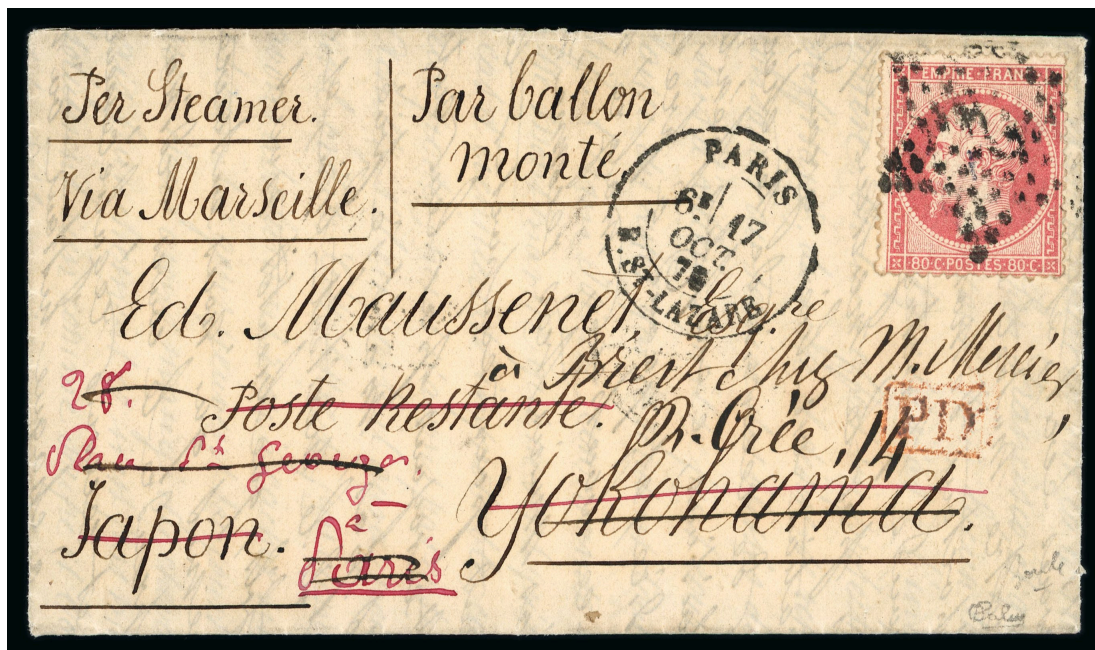 Per Steamer.
Via Marseille.
Par ballon
monté
PARIS
6E 17
OCT.
70
R. ST-LAZARE
EMPIRE FRANC
80·C·POSTES·80·C·
Ed. Maussenet,
à Brest chez M. Mercier,
28.
Poste Restante.
14
PD
St Georges.
Yokohama.
Japon.
à
Paris